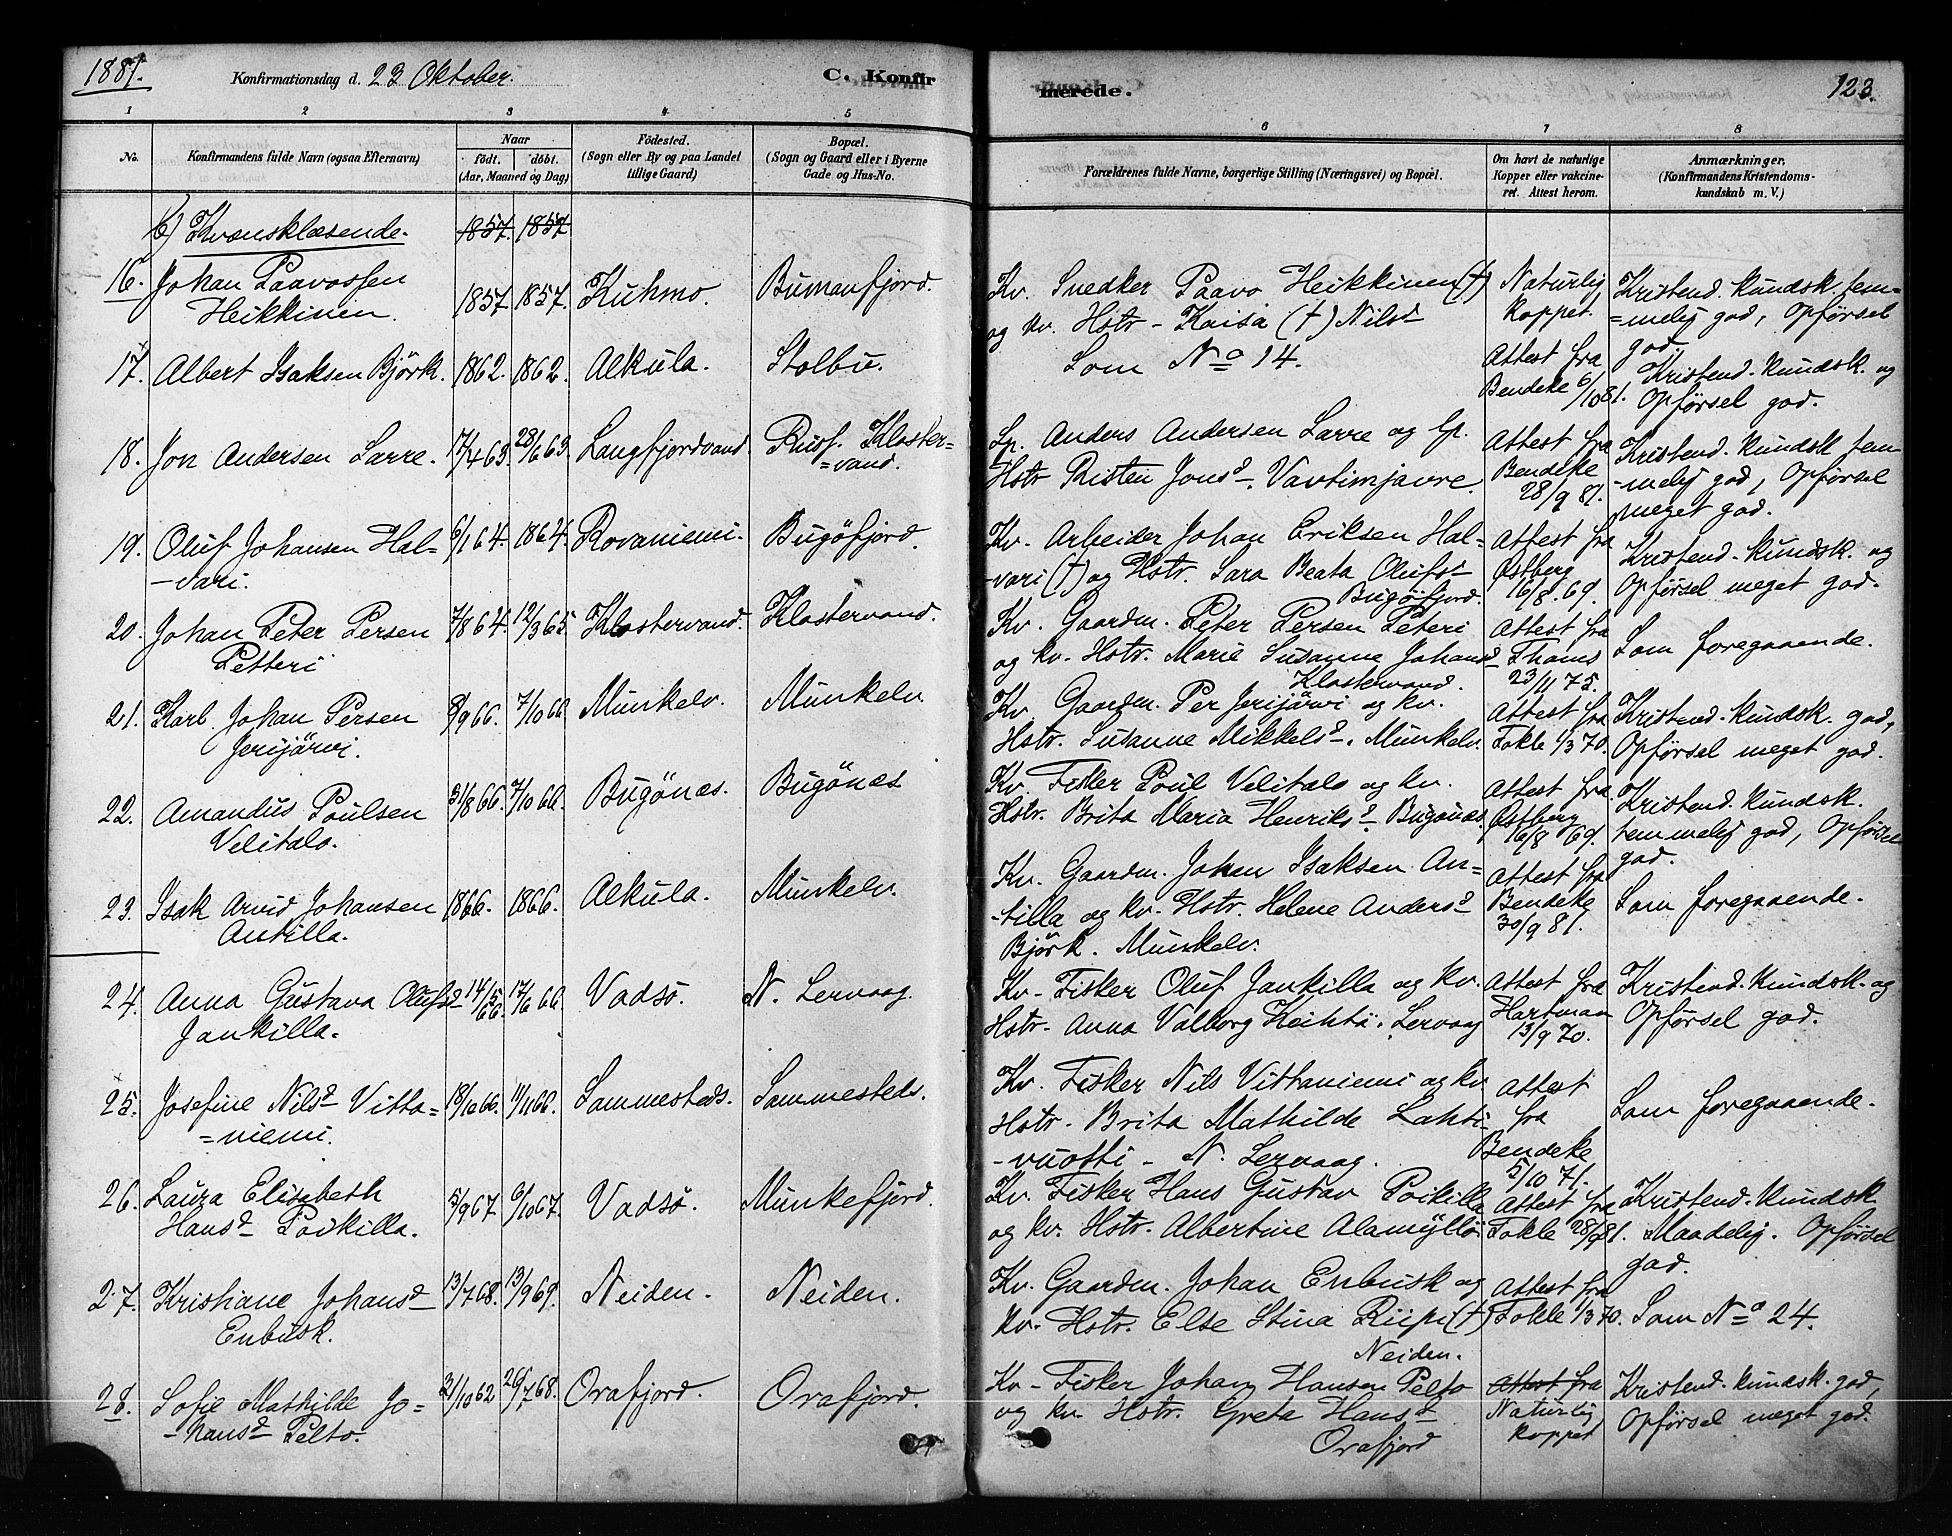 1881. Konfirmationsdag d. 23 Oktober. C. Konfir
merede. 123.
1 2 3 4 5
6 7 8
No. Konfirmandens fulde Navn (ogsaa Efternavn) Naar födt. döbt. (Aar, Maaned og Dag) Födested. (Sogn eller By og paa Landet tillige Gaard) Bopæl. (Sogn og Gaard eller i Byerne Gade og Hus-No.
Forældrenes fulde Navne, borgerlige Stilling (Næringsvei) og Bopæl. Om havt de naturlige Kopper eller vakcineret. Attest herom. Anmærkninger. (Konfirmandens Kristendomskundskab m. V.)
b) Kvænsklæsende. 1857. 1857
16. Johan Paavossen
Heikkinen. 1857. 1857. Kuhmo. Bumanfjord.
Kv. Snedker Paavo Heikkinen (†)
og kv. Hstr - Kaisa (†) Nilsd
Naturlig
koppet.
Kristend. kundsk. tem=
=melig god, Opførsel
god.
17. Albert Isaksen Björk. 1862. 1862. Alkula. Stolbu.
Som No 14.
Attest fra
Bendeke 6/10 81.
Kristend. kundsk. og
Opførsel god.
18. Jon Andersen Sarre. 17/4 63. 28/6 63. Langfjordvand. Russ. Kloster=
=vand.
Lp. Anders Andersen Sarre og lp.
Hstr Risten Jonsd. Vavtimjavre.
Attest fra
Bendeke
28/9 81.
Kristend. kundsk. tem
-melig god, Opførsel
meget god.
19. Oluf Johansen Hal-
-vari. 6/1 64. 1864. Rovaniemi. Bugöfjord.
Kv. Arbeider Johan Eriksen Hal-
vari (†) og Hstr. Sara Beata Olufsd
Bugöifjord.
Attest fra
Østberg
16/8. 69.
Kristend. kundsk. og
Opførsel meget god.
20. Johan Peter Persen
Petteri 7/8 64. 12/3 65. Klostervand. Klostervand.
Kv. Gaardm. Peter Persen Peteri
og kv. Hstr. Marie Susanne Johansd
Klostervand.
Attest fra
Thams
23/11 75.
Som foregaaende.
21. Karl Johan Persen
Jerijärvi. 8/9 66. 7/10 66 Munkelv. Munkelv.
Kv. Gaardm. Per Jerijärvi og kv.
Hstr. Susanne Mikkelsd. Munkelv.
Attest fra
Fokle 1/3 70.
Kristend. kundsk. god,
Opførsel meget god.
22. Amandus Poulsen
Velitalo. 31/8 66. 7/10 66. Bugönæs. Bugönæs
Kv. Fisker Poul Velitalo og kv.
Hstr. Brita Maria Henriksd. Bugönæs.
Attest fra
Østberg
16/8 69.
Kristend. kundsk.
temmelig god, Opførsel
god.
23. Isak Arvid Johansen
Antilla. 1866. 1866. Alkula. Munkelv.
Kv. Gaardm. Johan Isaksen An=
-tilla og kv. Hstr. Helene Andersd
Björk. Munkelv.
Attest fra
Bendeke
30/9 81.
Som foregaaende.
24. Anna Gustava Olufsd
Jankilla. 14/5 66. 17/6 66. Vadsö. N. Lervaag.
Kv. Fisker Oluf Jankilla og kv.
Hstr. Anna Valborg Keihtä. Lervaag
Attest fra
Hartman
13/9 70.
Kristend. kundsk. og
Opførsel god.
25. Josefine Nilsd Vitta=
=niemi. 18/10 66. 11/11 66. Sammesteds. Sammesteds.
Kv. Fisker Nils Vittaniemi og kv
Hstr. Brita Mathilde Lahti-
-vuotti - N. Lervaag.
Attest
fra
Bendeke
5/10 71.
Som foregaaende.
26. Laura Elisabeth
Hansd Poikilla. 5/9 67 6/10 67. Vadsö. Munkefjord.
Kv. Fisker Hans Gustav Poikilla
og kv. Hstr. Albertine Alamyllö
Attest fra
Fokle 28/9 81.
Kristend. kundsk
Maadelig. Opførsel
god.
27. Kristiane Johansd
Enbusk. 13/7 68. 13/9 69. Neiden. Neiden.
Kv. Gaardm. Johan Enbusk og
kv. Hstr. Else Stina Riipi (†)
Neiden.
Attest fra
Fokle 1/3 70.
Som No 24.
28. Sofie Mathilde Jo=
-hansd Pelto. 31/10 62 26/7 68. Orafjord. Orafjord.
Kv. Fisker Johan Hansen Pelto
og kv. Hstr. Greta Hansd
Orafjord
Attest fra
Naturlig
koppet
Kristend. kundsk. god,
Opførsel meget god.